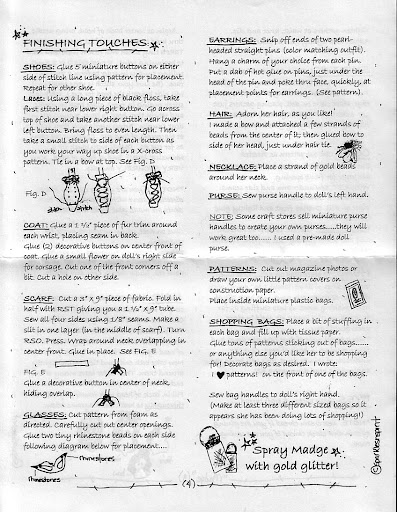 FINISHING TOUCHES
SHOES: Glue 5 miniature buttons on either
side of stitch line using pattern for placement.
Repeat for other shoe.
Laces: Using a long piece of black floss, take
first stitch near lower right button. Go across
top of shoe and take another stitch near lower
left button. Bring floss to even length. Then
take a small stitch to side of each button as
you work your way up shoe in a X-cross
pattern. Tie in a bow at top. See Fig. D
Fig. D
stitch stitch
COAT: Glue a 1 1/2" piece of fur trim around
each wrist, placing seam in back.
Glue (2) decorative buttons on center front of
coat. Glue a small flower on doll's right side
for corsage. Cut one of the front corners off a
bit. Cut a hole on other side.
SCARF: Cut a 3" x 9" piece of fabric. Fold in
half with RST giving you a 1 1/2" x 9" tube.
Sew all four sides using 1/8" seams. Make a
slit in one layer (in the middle of scarf). Turn
RSO. Press. Wrap around neck overlapping in
center front. Glue in place. See FIG. E
FIG. E
Glue a decorative button in center of neck,
hiding overlap.
GLASSES: Cut pattern from foam as
directed. Carefully cut out center openings.
Glue two tiny rhinestone beads on each side
following diagram below for placement....
rhinestones
rhinestones
EARRINGS: Snip off ends of two pearl-
headed straight pins (color matching outfit).
Hang a charm of your choice from each pin.
Put a dab of hot glue on pins, just under the
head of the pin and poke thru face, quickly, at
placement points for earrings. (See pattern).
HAIR: Adorn her hair, as you like!
I made a bow and attached a few strands of
beads from the center of it; then glued bow to
side of her head, just under hair tie.
NECKLACE: Place a strand of gold beads
around her neck.
PURSE: Sew purse handle to doll's left hand.
NOTE: Some craft stores sell miniature purse
handles to create your own purses.....they will
work great too...... I used a pre-made doll
purse.
PATTERNS: Cut out magazine photos or
draw your own little pattern covers on
construction paper.
Place inside miniature plastic bags.
SHOPPING BAGS: Place a bit of stuffing in
each bag and fill up with tissue paper.
Glue tons of patterns sticking out of bags......
or anything else you'd like her to be shopping
for! Decorate bags as desired. I wrote:
I ♥ patterns! on the front of one of the bags.
Sew bag handles to doll's right hand.
(Make at least three different sized bags so it
appears she has been doing lots of shopping!)
Spray Madge
with gold glitter!
(4)